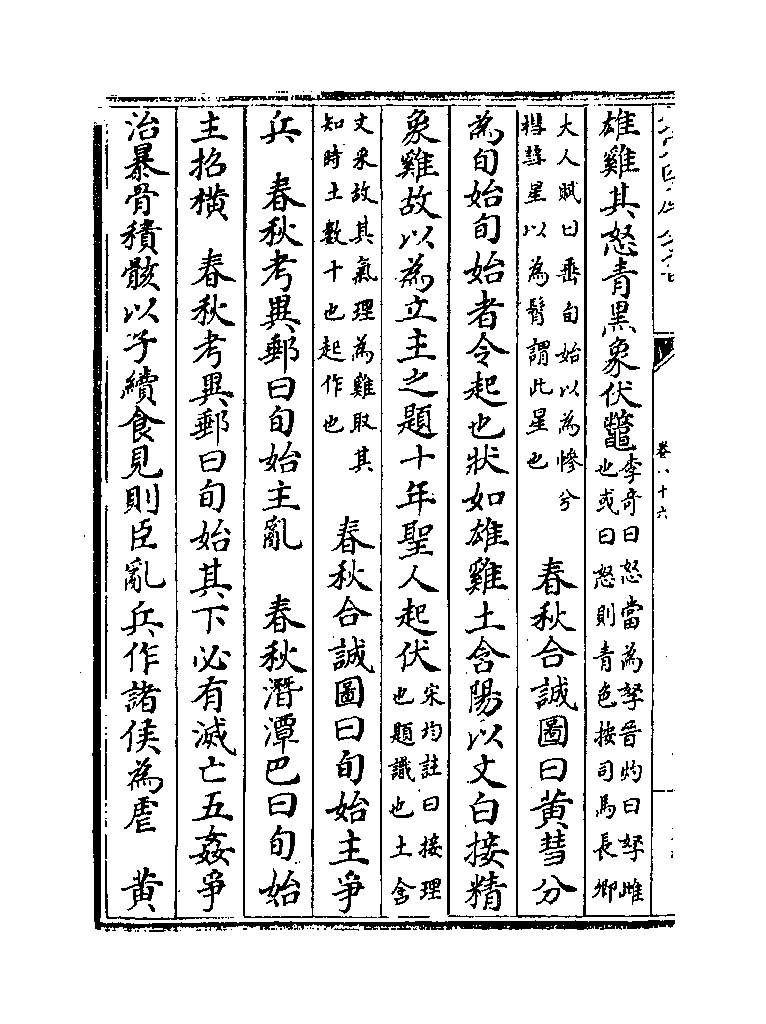 卷八十六
雄雞其怒青黑象伏鼈李奇曰怒當為孥晉灼曰孥雌
也或曰怒則青色按司馬長卿
大人賦曰垂旬始以為慘兮
彗星以為髾謂此星也
春秋合誠圖曰黄彗分
為旬始旬始者令起也狀如雄雞土含陽以文白接精
象雞故以為立主之題十年聖人起伏宋均註曰接理
也題識也土含
文采故其氣理為雞取其
知時土數十也起作也
春秋合誠圖曰旬始主爭
兵　春秋考異郵曰旬始主亂　春秋潛潭巴曰旬始
主招橫　春秋考異郵曰旬始其下必有滅亡五姦爭
治暴骨積骸以子續食見則臣亂兵作諸侯為虐　黄